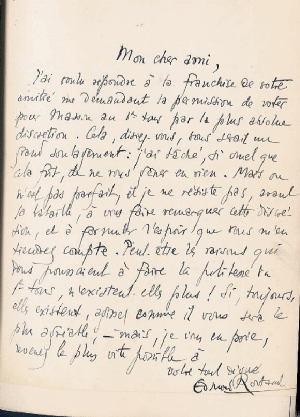 Mon cher ami,
J'ai voulu répondre à la franchise de votre
amitié me demandant la permission de voter
pour Masson au 1er tour par la plus absolue
discrétion. Cela, disiez-vous, vous serait un
grand soulagement : j'ai tâché, si cruel que
cela fût, de ne vous gêner en rien. Mais on
n'est pas parfait, et je ne résiste pas, avant
la bataille, à vous faire remarquer cette discré-
tion, et à formuler l'espoir que vous m'en
tiendrez compte. Peut-être les raisons qui
vous poussaient à faire la politesse du
1er tour, n'existent-elles plus ! Si, toujours,
elles existent, agissez comme il vous sera le
plus agréable, — mais, je vous en prie,
revenez le plus vite possible à
votre tout dévoué
Edmond Rostand